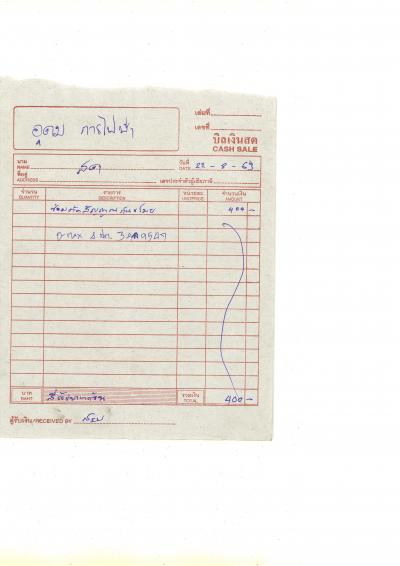 เล่มที่
เลขที่
อุดม การไฟฟ้า
บิลเงินสด
CASH SALE
นาม
NAME สด
วันที่
DATE 22-8-63
ที่อยู่
ADDRESS
เลขประจำตัวผู้เสียภาษี
จำนวน รายการ หน่วยละ จำนวนเงิน
QUANTITY DESCRIPTION UNIT/PRICE AMOUNT
400-
บาท
BAHT สี่ร้อยบาทถ้วน รวมเงิน
TOTAL 400-
ผู้รับเงิน/RECEIVED BY